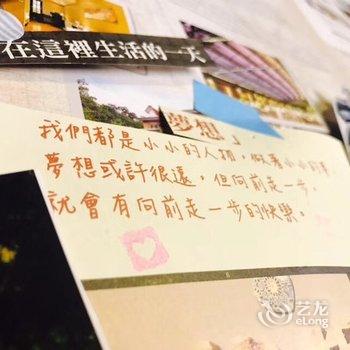 在這裡生活的一天
夢想
我們都是小小的人物,做著小小的夢
夢想或許很遠,但向前走一步,
就會有向前走一步的快樂。
艺龙
eLong